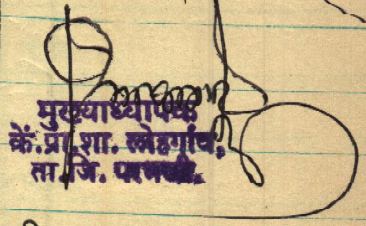 मुख्याध्यापक
कें.प्रा.शा. लोहगांव,
ता.जि. परभणी.